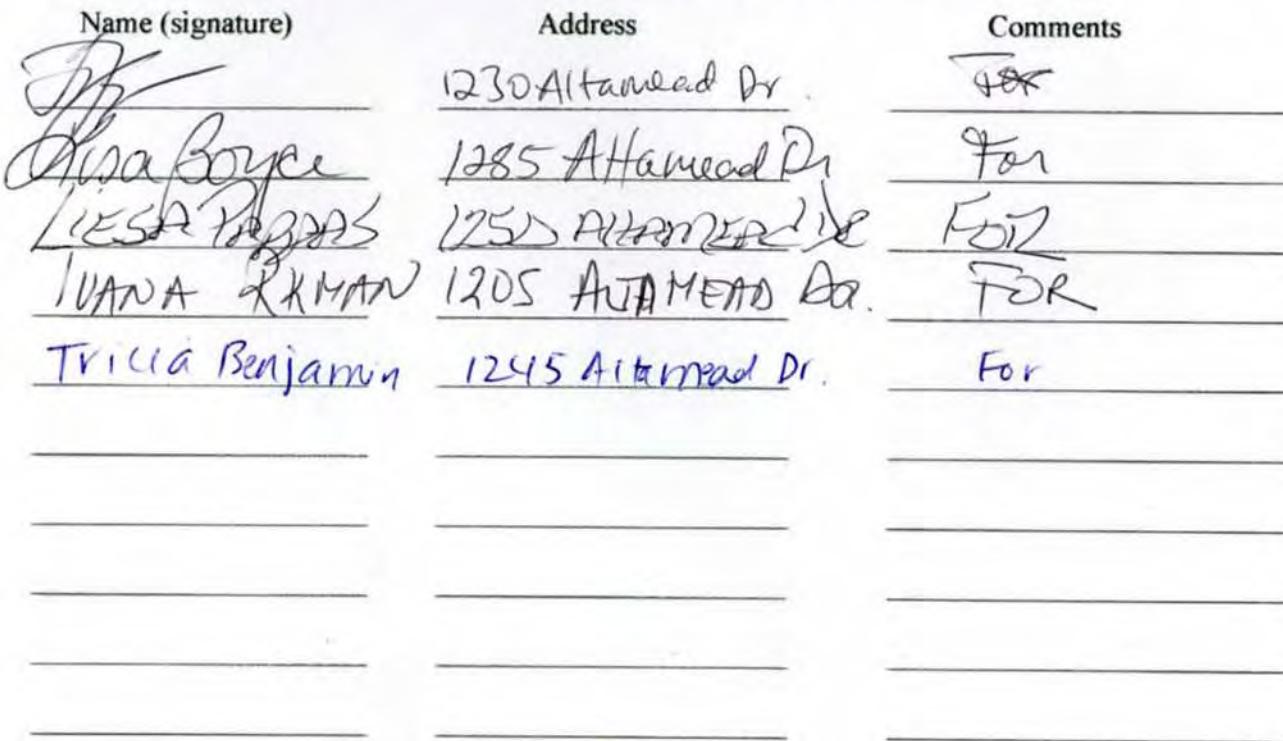 Name (signature) Address Comments
1230 Altamead Dr. For
Lisa Boyce 1285 Altamead Dr For
LIESA 1250 ALTAMEAD DR FOR
IVANA RKMAN 1205 ALTAMEAD DR. FOR
Tricia Benjamin 1245 Altamead Dr. For